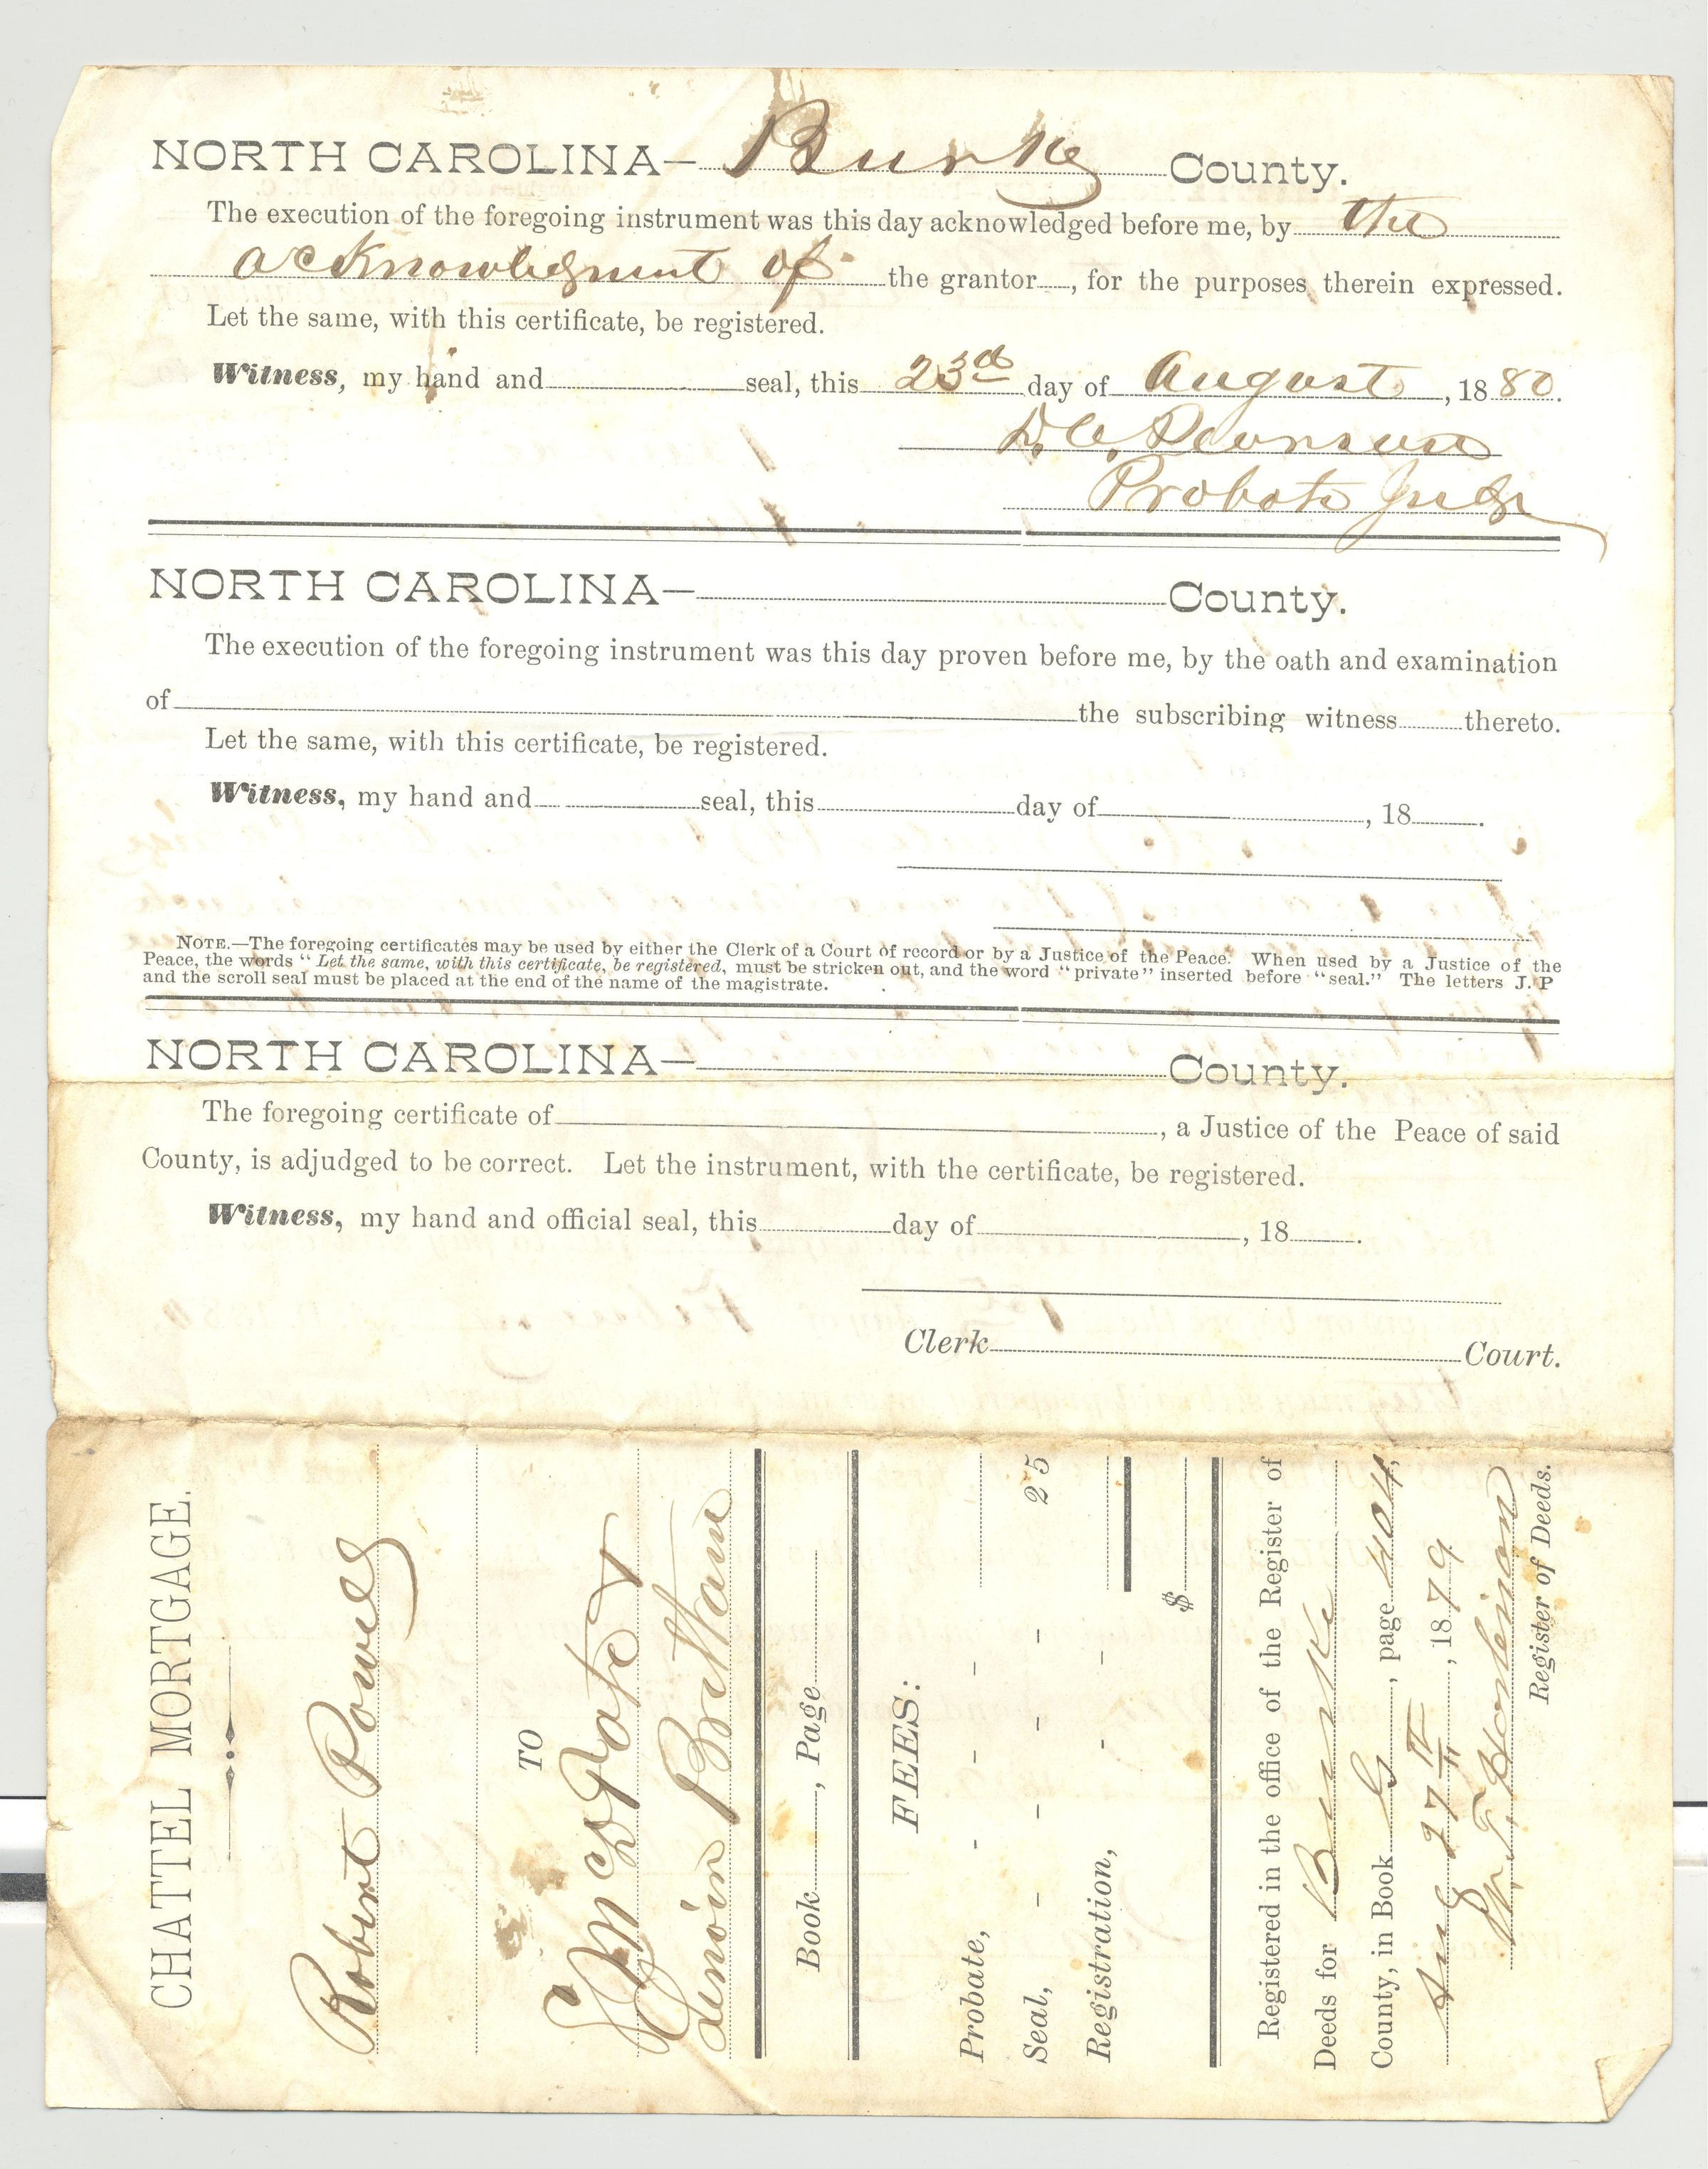 NORTH CAROLINA— Burke County.
The execution of the foregoing instrument was this day acknowledged before me, by the
acknowledgment of the grantor , for the purposes therein expressed.
Let the same, with this certificate, be registered.
Witness, my hand and seal, this 23d day of August , 1880.
D. C. Pearson
Probate Judge
NORTH CAROLINA— County.
The execution of the foregoing instrument was this day proven before me, by the oath and examination
of the subscribing witness thereto.
Let the same, with this certificate, be registered.
Witness, my hand and seal, this day of , 18 .
NOTE.—The foregoing certificates may be used by either the Clerk of a Court of record or by a Justice of the Peace. When used by a Justice of the
Peace, the words “ Let the same, with this certificate, be registered, must be stricken out, and the word “private” inserted before “seal.” The letters J. P
and the scroll seal must be placed at the end of the name of the magistrate.
NORTH CAROLINA— County.
The foregoing certificate of , a Justice of the Peace of said
County, is adjudged to be correct. Let the instrument, with the certificate, be registered.
Witness, my hand and official seal, this day of , 18 .
Clerk Court.
CHATTEL MORTGAGE.
Robert Powel
TO
Lenoir Brittain
Book , Page
FEES:
Probate, - - -
Seal, - - - - 25
Registration, - -
$
Registered in the office of the Register of
Deeds for Burke
County, in Book G , page 404,
Aug 27 , 1879
Register of Deeds.